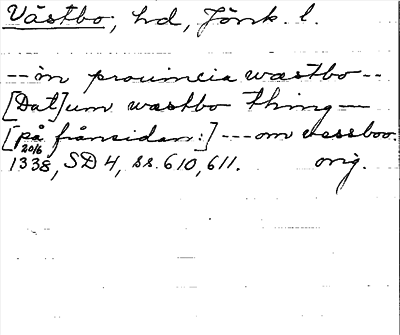 Västbo, hd, Jönk. l.
-- in prouincia wæstbo --
[Dat]um wæstbo thing —
[på frånsidan:] --- om vessboo.
20/6
1338, SD 4, ss. 610, 611. orig.